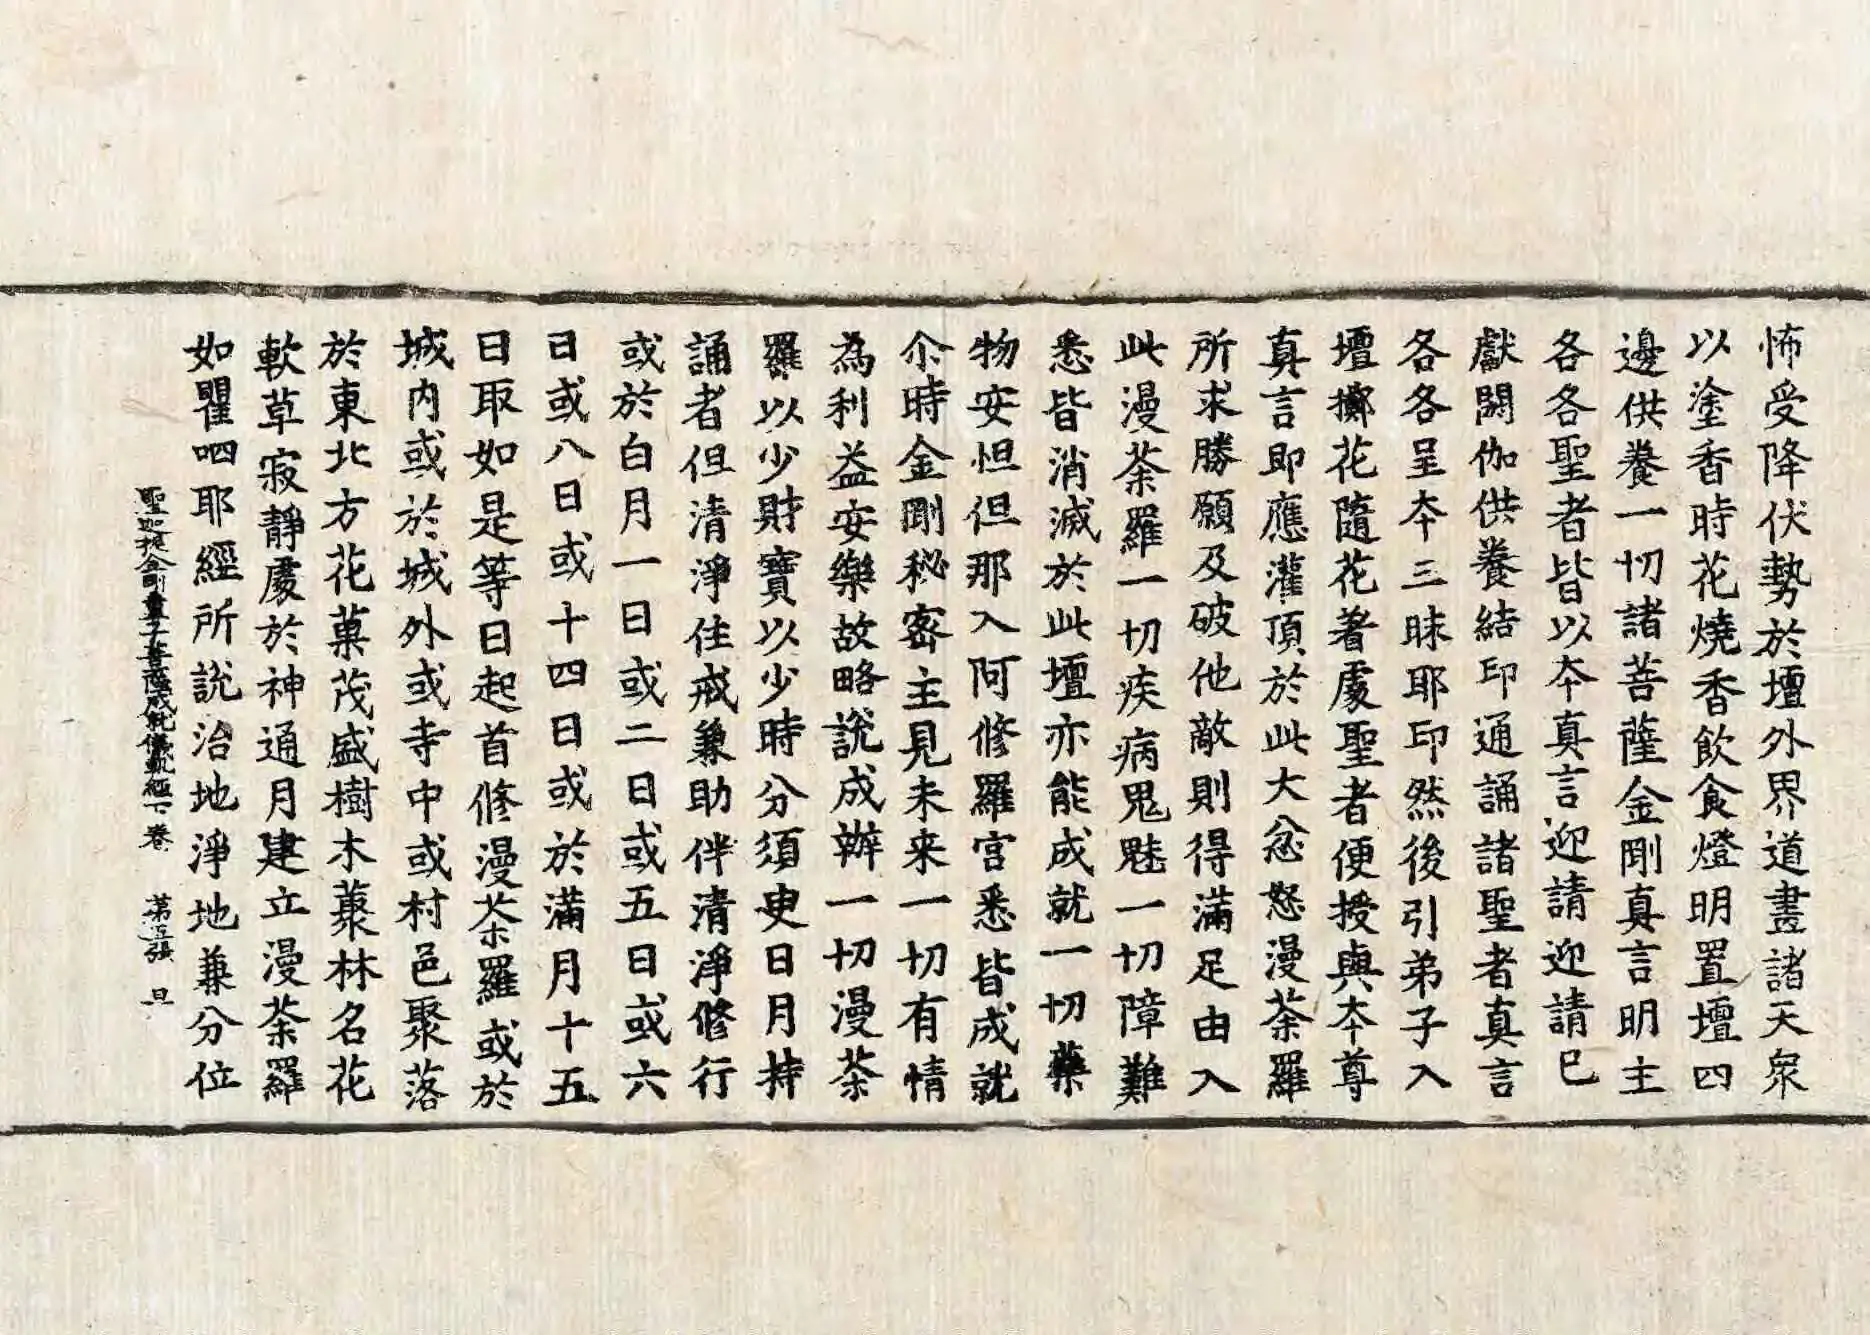 怖受降伏勢於壇外界道畫諸天衆
以塗香時花燒香飲食燈明置壇四
邊供養一切諸菩薩金剛真言明主
各各聖者皆以夲真言迎請迎請已
獻閼伽供養結印通誦諸聖者真言
各各呈夲三昧耶印然後引弟子入
壇擲花隨花著處聖者便授與夲尊
真言即應灌頂於此大忿怒漫荼羅
所求勝願及破他敵則得滿足由入
此漫荼羅一切疾病鬼魅一切障難
悉皆消滅於此壇亦能成就一切藥
物安怛但那入阿修羅宮悉皆成就
尒時金剛秘密主見未来一切有情
為利益安樂故略說成辦一切漫荼
羅以少財寶以少時分須臾日月持
誦者但清淨住戒兼助伴清淨修行
或於白月一日或二日或五日或六
日或八日或十四日或於滿月十五
日取如是等日起首修漫荼羅或於
城内或於城外或寺中或村邑聚落
於東北方花菓茂盛樹木藂林名花
軟草寂靜處於神通月建立漫荼羅
如瞿呬耶經所說治地淨地兼分位
聖迦抳金剛童子菩薩成就儀軌經下卷 第五張 旦